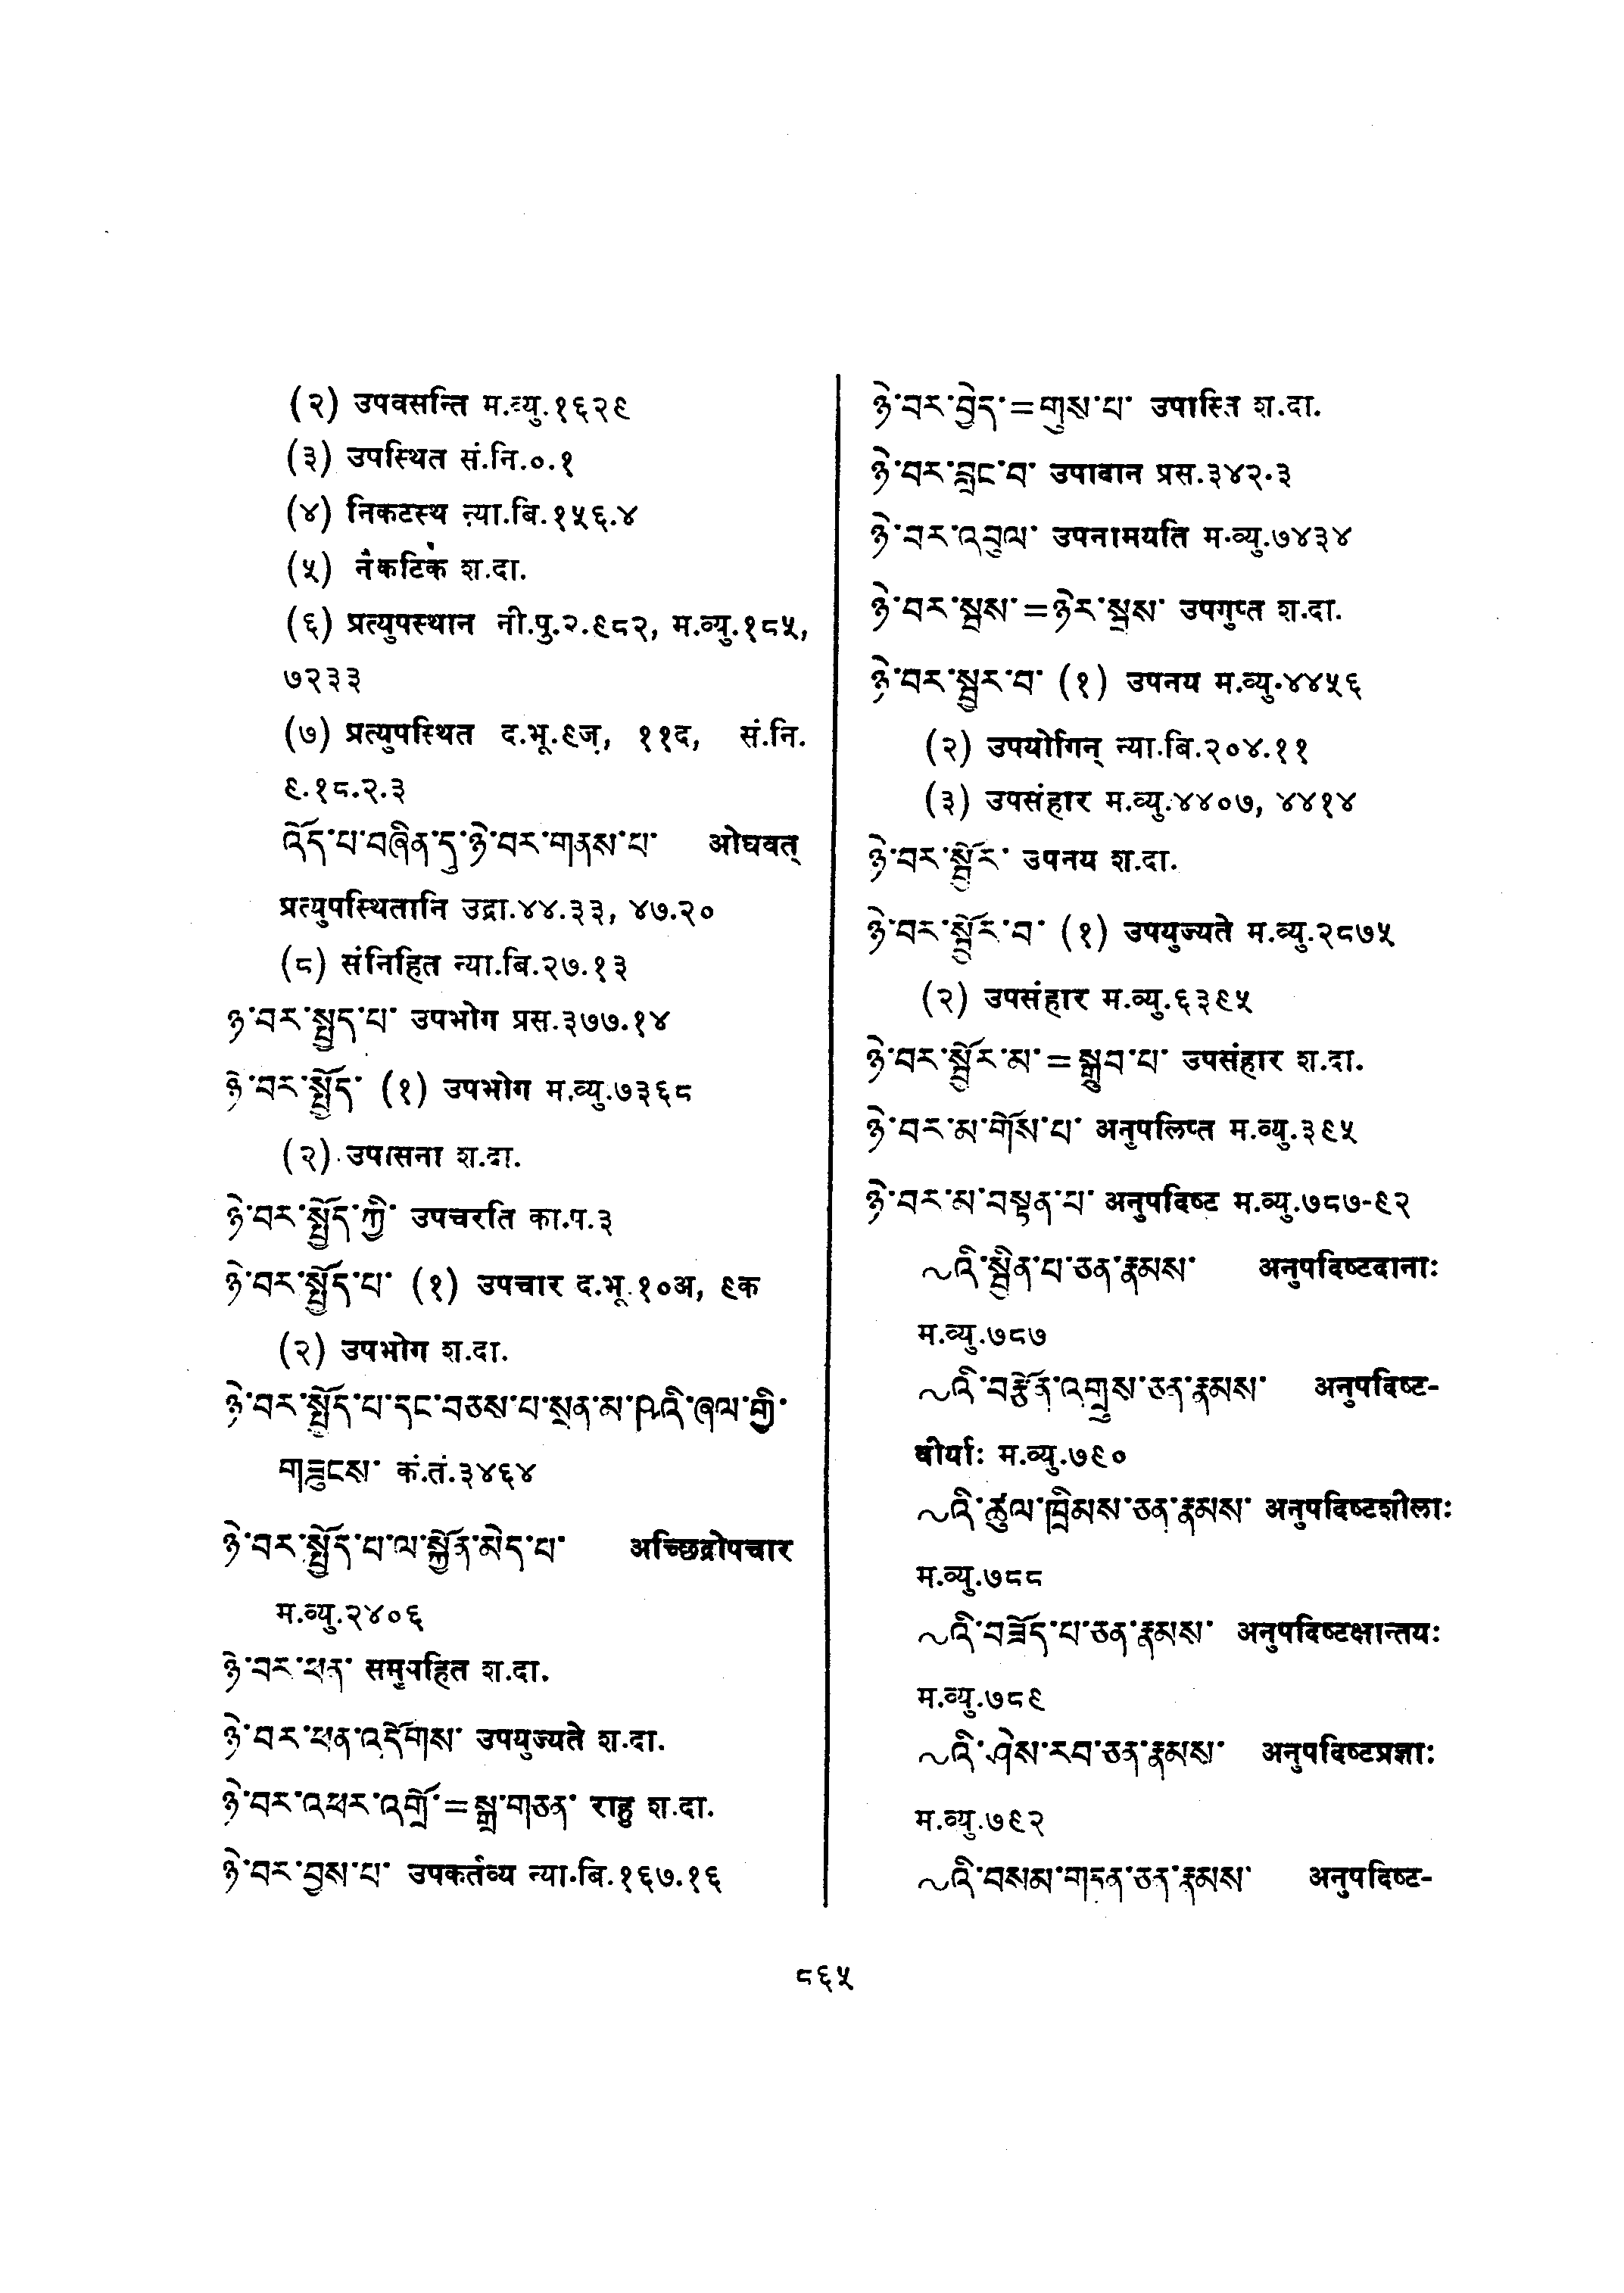 (२) उपवसन्ति म.व्यु.१६२९
(३) उपस्थित सं.नि.०.१
(४) निकटस्थ न्या.बि.१५६.४
(५) नैकटिक श.दा.
(६) प्रत्युपस्थान नी.पु.२.९८२, म.व्यु.१८५,
७२३३
(७) प्रत्युपस्थित द.भू.९ज़, ११द, सं.नि.
९.१८.२.३
འོད་པ་བཞིན་དུ་ཉེ་བར་གནས་པ་ ओघवत्
प्रत्युपस्थितानि उद्रा.४४.३३, ४७.२०
(८) संनिहित न्या.बि.२७.१३
ཉེ་བར་སྤྱད་པ་ उपभोग प्रस.३७७.१४
ཉེ་བར་སྤྱོད་ (१) उपभोग म.व्यु.७३६८
(२) उपासना श.दा.
ཉེ་བར་སྤྱོད་ཀྱི་ उपचरति का.प.३
ཉེ་བར་སྤྱོད་པ་ (१) उपचार द.भू.१०अ, ९क
(२) उपभोग श.दा.
ཉེ་བར་སྤྱོད་པ་དང་བཅས་པ་སྲན་མ་ཥའི་ཞལ་གྱི་
གཟུངས་ कं.तं.३४६४
ཉེ་བར་སྤྱོད་པ་ལ་སྐྱོན་མེད་པ་ अच्छिद्रोपचार
म.व्यु.२४०६
ཉེ་བར་ཕན་ समुपहित श.दा.
ཉེ་བར་ཕན་འདོགས་ उपयुज्यते श.दा.
ཉེ་བར་འཕར་འགྲོ་=སྒྲ་གཅན་ राहु श.दा.
ཉེ་བར་བྱས་པ་ उपकर्तव्य न्या.बि.१६७.१६
ཉེ་བར་བྱེད་=གུས་པ་ उपास्ति श.दा.
ཉེ་བར་བླང་བ་ उपादान प्रस.३४२.३
ཉེ་བར་འབུལ་ उपनामयति म.व्यु.७४३४
ཉེ་བར་སྦས་=ཉེར་སྦས་ उपगुप्त श.दा.
ཉེ་བར་སྦྱར་བ་ (१) उपनय म.व्यु.४४५६
(२) उपयोगिन् न्या.बि.२०४.११
(३) उपसंहार म.व्यु.४४०७, ४४१४
ཉེ་བར་སྦྱོར་ उपनय श.दा.
ཉེ་བར་སྦྱོར་བ་ (१) उपयुज्यते म.व्यु.२८७५
(२) उपसंहार म.व्यु.६३९५
ཉེ་བར་སྦྱོར་མ་=སྒྲུབ་པ་ उपसंहार श.दा.
ཉེ་བར་མ་གོས་པ་ अनुपलिप्त म.व्यु.३९५
ཉེ་བར་མ་བསྟན་པ་ अनुपदिष्ट म.व्यु.७८७-९२
~འི་སྦྱིན་པ་ཅན་རྣམས་ अनुपदिष्टदानाः
म.व्यु.७८७
~འི་བརྩོན་འགྲུས་ཅན་རྣམས་ अनुपदिष्ट-
वीर्याः म.व्यु.७९०
~འི་ཚུལ་ཁྲིམས་ཅན་རྣམས་ अनुपदिष्टशीलाः
म.व्यु.७८८
~འི་བཟོད་པ་ཅན་རྣམས་ अनुपदिष्टक्षान्तयः
म.व्यु.७८९
~འི་ཤེས་རབ་ཅན་རྣམས་ अनुपदिष्टप्रज्ञाः
म.व्यु.७९२
~འི་བསམ་གཏན་ཅན་རྣམས་ अनुपदिष्ट-
८६५